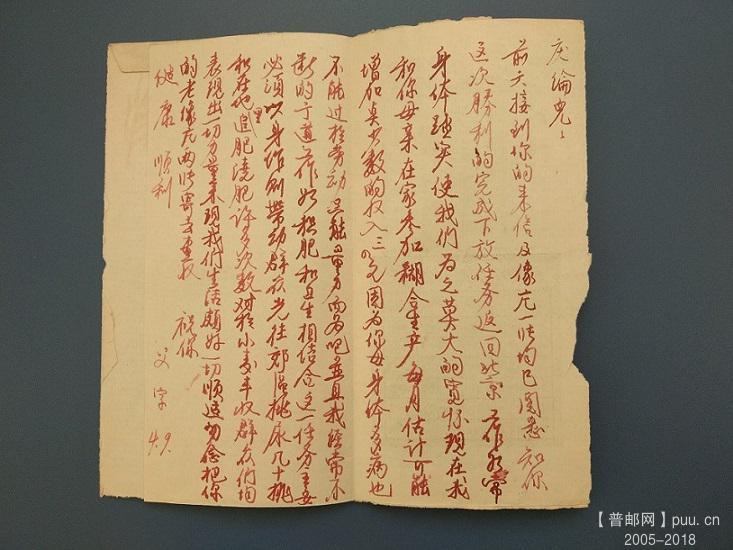 庆纶儿：
前天接到你的来信及像片一张均已阅悉 知你
这次胜利的完成下放任务返回北京 工作如常
身体结实使我们为之莫大的宽怀现在我
和你母亲在家参加糊盒生产每月估计可能
增加点少数的收入三、四元因为你母身体多病也
不能过于劳动只能量力而为吧并且我经常不
断的干道工作如积肥和卫生相结合这一任务主要
必须以身作则带动群众光往郊区挑尿几十挑
和在地里追肥浇肥许多次数对于小麦丰收群众们均
表现出一切力量来现我们生活颇好一切顺适勿念把你
的老像片两张寄去查收 祝你
健康 顺利
父字
4.9.
【普邮网】puu.cn
2005-2018